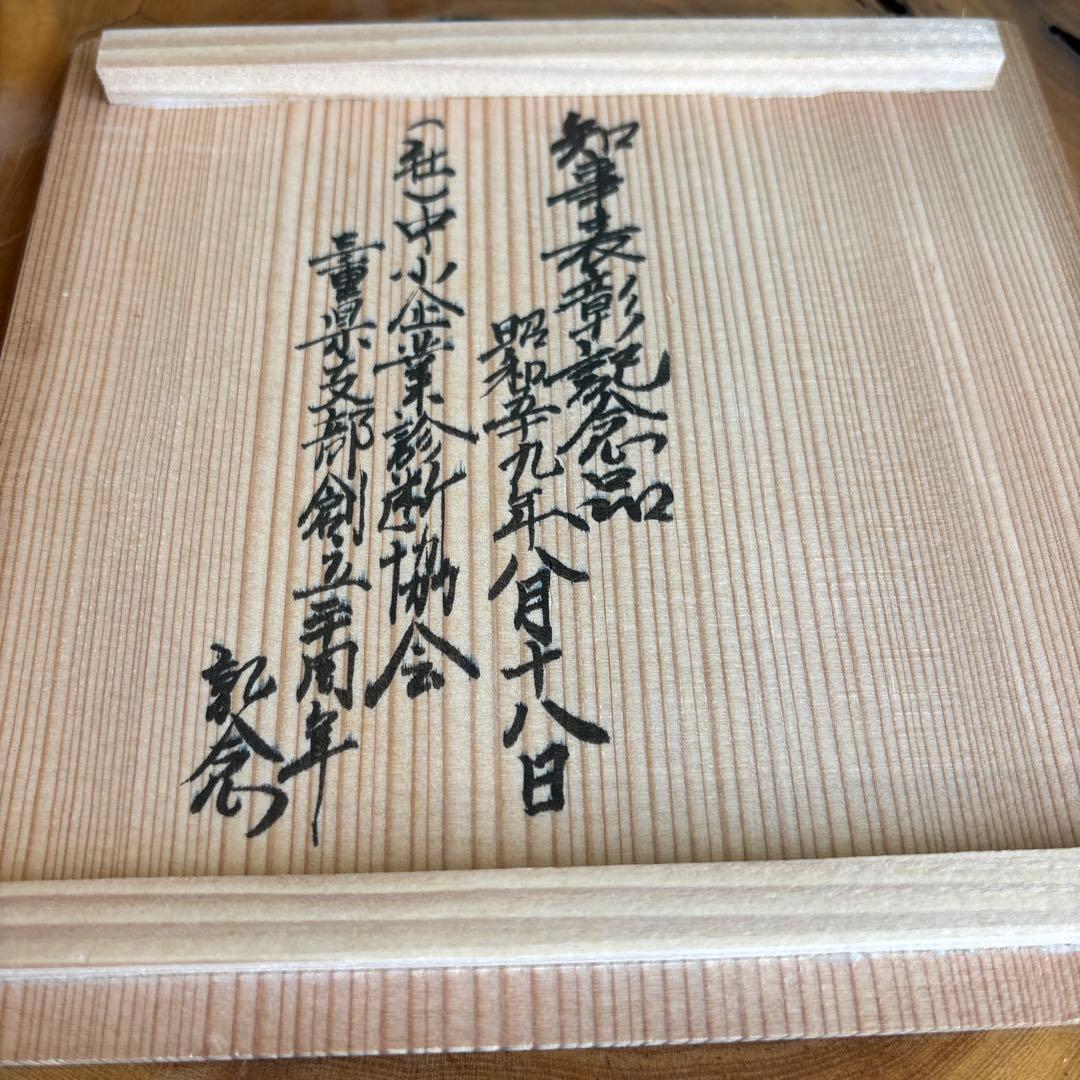 知事表彰記念品
昭和五十九年八月十八日
(社)中小企業診断協会
三重県支部創立三十周年
記念